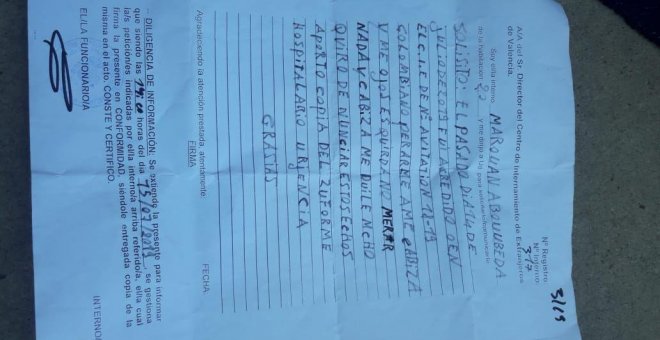 3/19
Nº Registro:
Nº Interno:
317
A/A del Sr. Director del Centro de Internamiento de Extranjeros
de Valencia.
Soy el/la interno MAROUAN ABOUOBEDA
de la habitación y me dirijo a Ud. para solicitarle/comunicarle
SOLISTO. EL PASADO DIA 14 DE
JULIO DE 2019 FUI AGREDIDO EN
EL C.I.E DE Nº AVITATION
COLOMBIANO PERARME A ME CABIZA
Y ME OJOS ESQUIRDA NO MERAR
NADA Y CABIZA ME DUILE MCHO
QUIRO DENUNCIAR ESTOS ECHOS
APORTO COPIA DEL INFORME
HOSPITALARIO URGENCIA
GRASIAS
Agradeciendo la atención prestada, atentamente
FIRMA
FECHA:
- DILIGENCIA DE INFORMACIÓN: Se extiende la presente para informar
que siendo las horas del día 15/07/2019, se gestiona
la/s peticion/es indicadas por el/la interno/a arriba referido/a, el/la cual
firma la presente en CONFORMIDAD, siéndole entregada copia de la
misma en el acto. CONSTE Y CERTIFICO.
EL/LA FUNCIONARIO/A
INTERNO